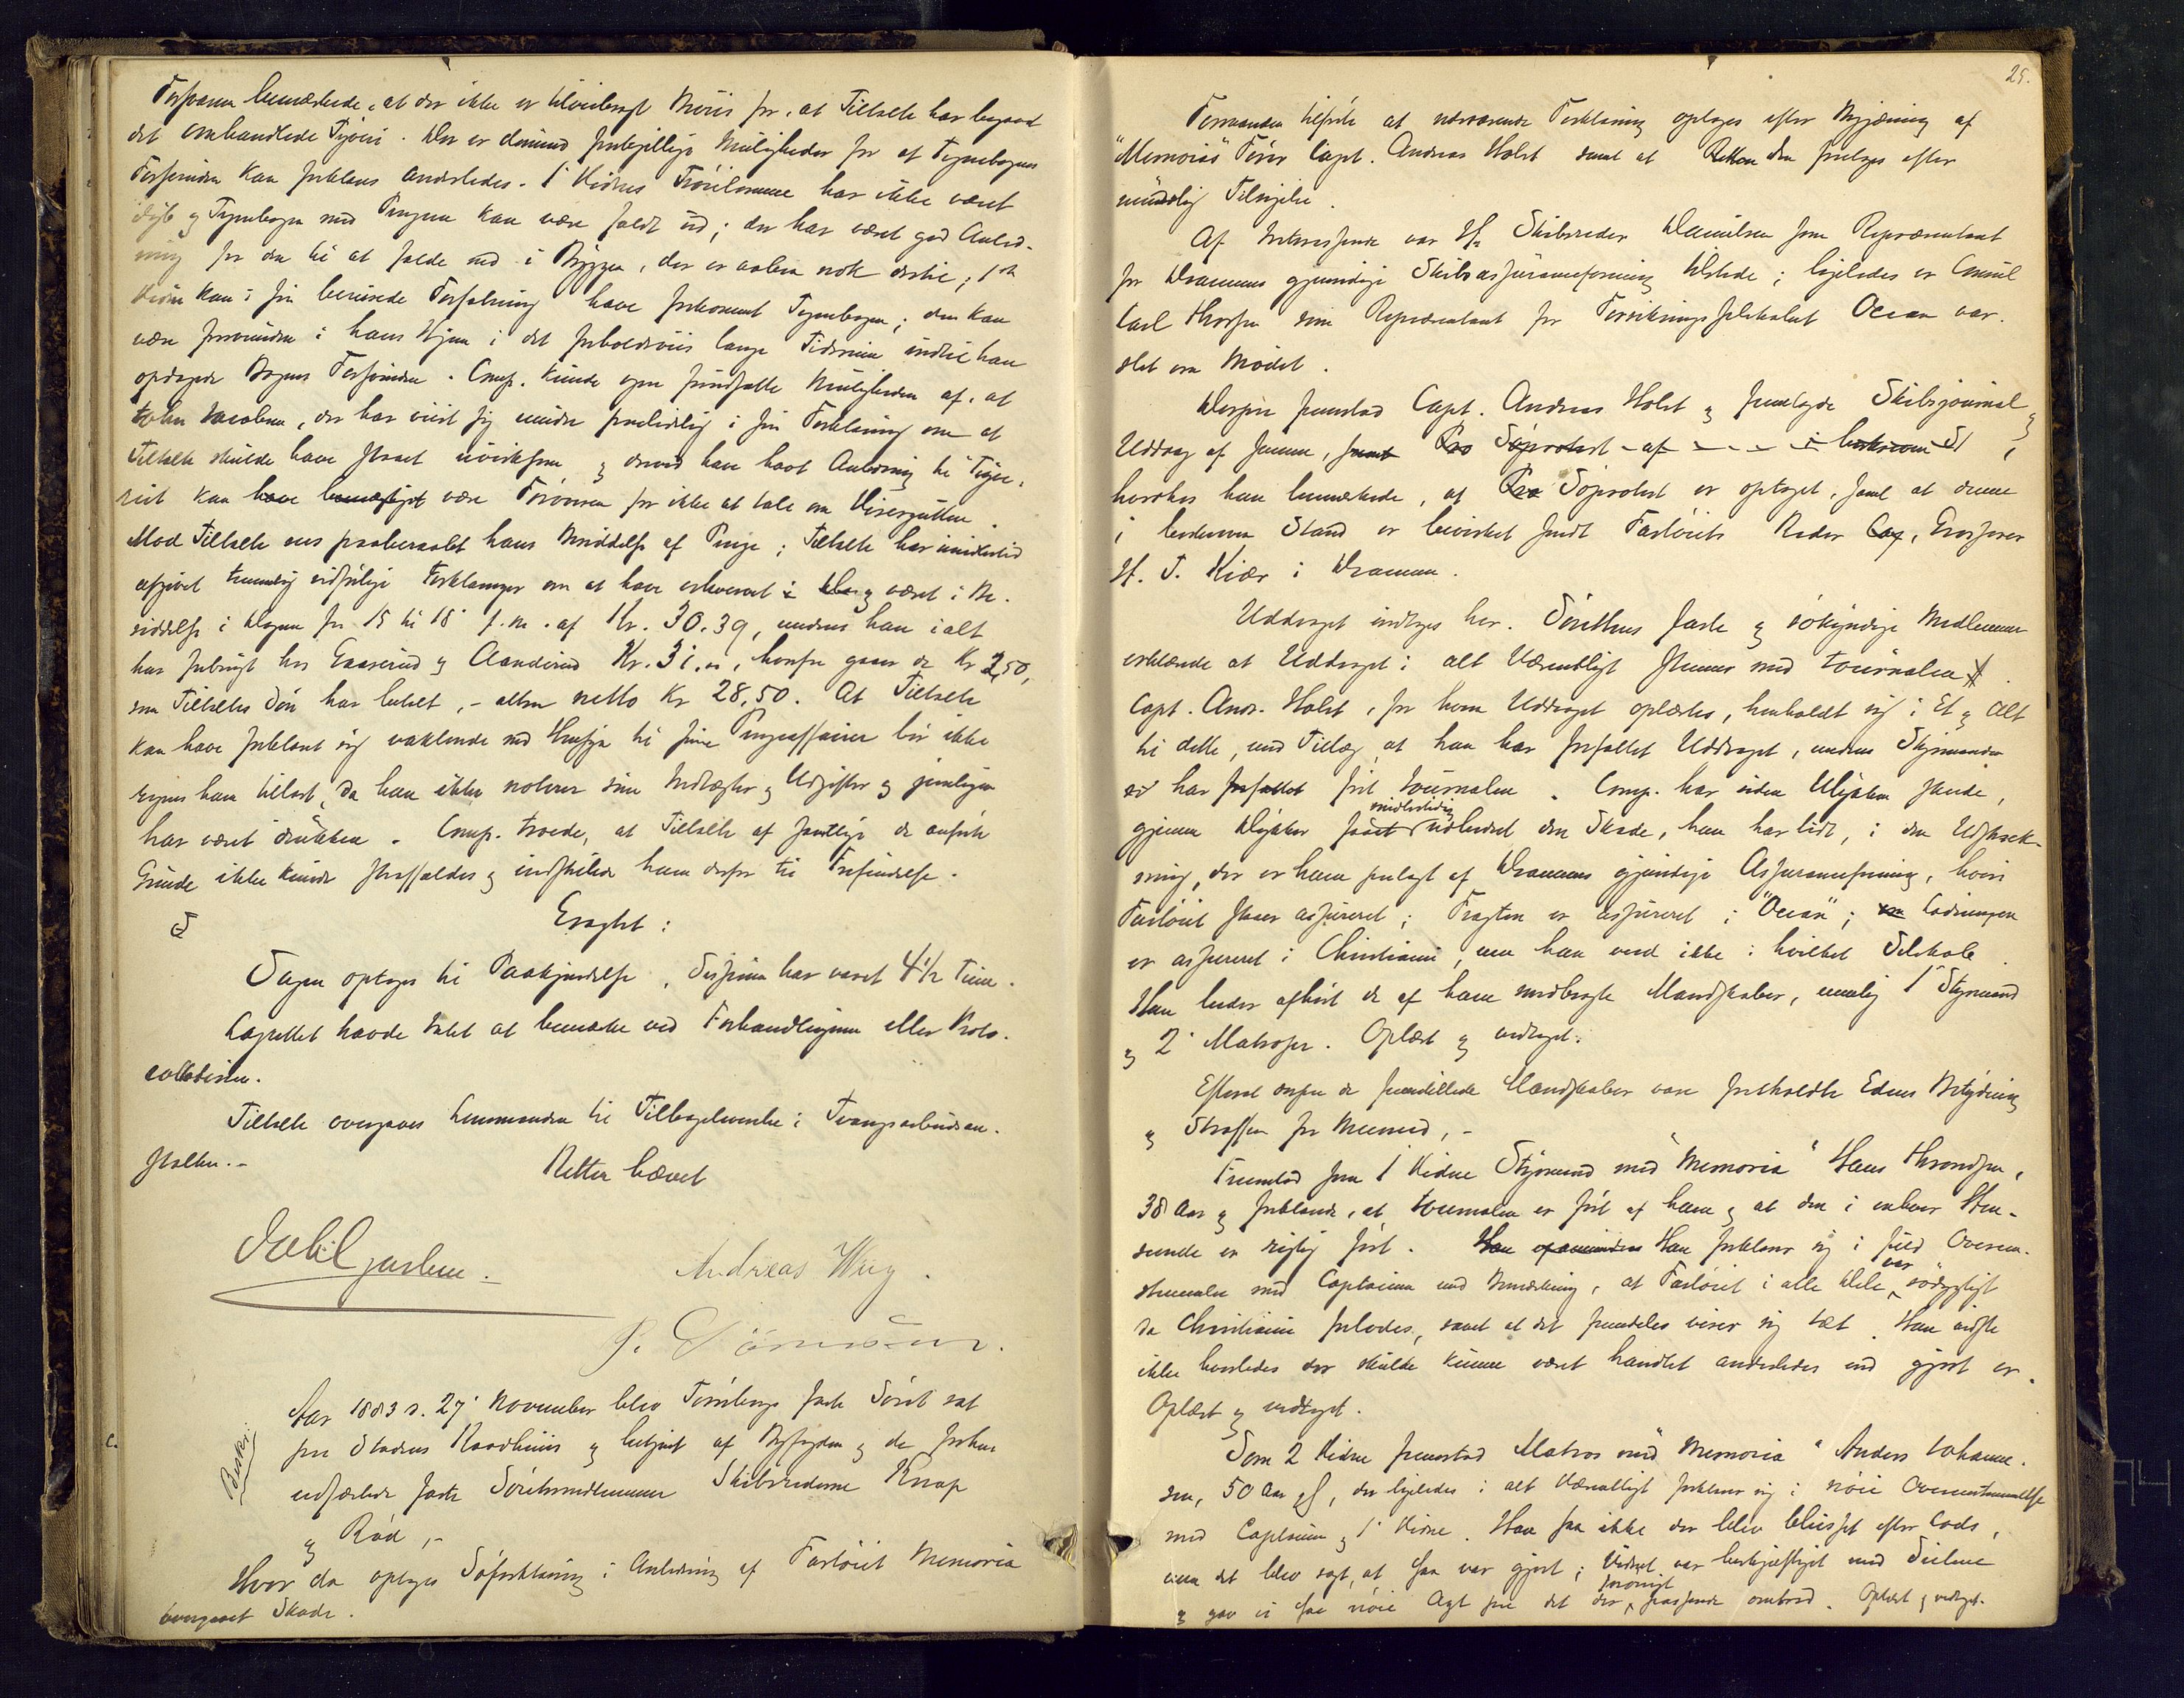 Forsvaren bemærkede, at der ikke er tilveiebragt Beviis for, at Tiltalte har begaaet
det omhandlede Tyveri. Der er derimod forskjellige Muligheder for at Tegnebogens
Forsvinden kan forklares anderledes. 1 Vidnes Trøielomme har ikke været
dyb og Tegnebogen med Pengene kan være faldt ud; der har været god Anled-
ning for den til at falde ned i Bryggen, der er aaben nok dertil; 1ste
Vidne kan i sin berusede Forfatning have forkommet Tegnebogen; den kan
være forsvunden i hans Hjem i det forholdsviis lange Tidsrum indtil han
opdagede Bogens Forsvinden. Comp. kunde ogsaa forudsætte Muligheden af, at
John Jacobsen, der har viist sig mindre paalidelig i sin Forklaring om at
Tiltalte skulde have staaet uvirksom og derved have havt Anledning til Tyve-
riet kan være Tyven for ikke at tale om Visergutten.
Mod Tiltalte sees paaberaabt hans Besiddelse af Penge; Tiltalte har imidlertid
afgivet temmelig udførlige Forklaringer om at have erhvervet og været i Be-
siddelse i Dagene fra 15 til 18 f.m. af Kr. 30.39, medens han ialt
har forbrugt hos Gaaserud og Aanderud Kr. 31.00, herfra gaar de Kr 2,50,
som Tiltaltes Søn har betalt, - altsaa netto Kr 28,50. At Tiltalte
kan have forklaret sig vaklende med Hensyn til sine Pengeaffairer bør ikke
regnes ham tillast, da han ikke noterer sine Indtægter og Udgifter og jevnligen
har været drukken. Comp. troede, at Tiltalte af samtlige de anførte
Grunde ikke kunde straffældes og indstillede ham derfor til Frifindelse.
Eragtet:
Sagen optages til Paakjendelse. Sessionen har varet 4 1/2 Time.
Lagrettet havde Intet at bemærke ved Forhandlingerne eller Proto-
collationen.
Tiltalte overgaves Lensmanden til Tilbagelevering i Tvangsarbeidsan-
stalten.-
Retten hævet
Andreas Wiig.
Aar 1883 d. 27 November blev Tønsbergs faste Søret sat
paa Stadens Raadhuus og betjent af Byfogden og de forhen
edfæstede faste Søretsmedlemmer Skibsrederne Knap
og Rød,-
Beskr.
Hvor da optoges Søforklaring i Anledning af Fartøiet Memoria
overgaaet Skade.
25.
Formanden tilførte at nærværende Forklaring optages efter Begjæring af
"Memorias" Fører Capt. Andreas Holst samt at Retten den foretages efter
mundtlig Tilsigelse.
Af Interessenter var Hr. Skibsreder Danielsen som Repræsentant
for Drammens gjensidige Skibsassuranceforening tilstede; ligeledes er Consul
Carl Thorsen som Repræsentant for Forsikringsselskabet Ocean var-
slet om Mødet.
Derpaa fremstod Capt. Andreas Holst og fremlagde Skibsjournal og
Uddrag af samme,
hvorhos han bemærkede, at Søprotest er optaget, samt at denne
i bekræftet Stand er bevirket sendt Fartøiets Reder, Grosserer
H. T. Kiær i Drammen.
Uddraget indtages her. Sørettens faste og søkyndige Medlemmer
erklærede at Uddraget i alt Væsentligt stemmer med Journalen.
Capt. Andr. Holst, for hvem Uddraget oplæstes, henholdt sig i Et og Alt
til dette, med Tillæg at han har forfattet Uddraget, medens Styrmanden
har ført Journalen. Comp. har siden Ulykken skeede,
gjennem Dykker faaet midlertidig udbedret den Skade, han har lidt, i den Udstræk-
ning, der er ham paalagt af Drammens gjensidige Assuranceforening, hvori
Fartøiet staar assureret; Fragten er assureret i "Ocean"; Ladningen
er assureret i Christiania, men han veed ikke i hvilket Selskab.
Han beder afhørt de af ham medbragte Mandskaber, nemlig 1 Styrmand
og 2 Matroser. Oplæst og vedtaget.
Efterat derpaa de fremstillede Mandskaber vare foreholdte Edens Betydning
og Straffen for Meened,-
Fremstod som 1 Vidne Styrmand med "Memoria" Hans Throndsen,
38 Aar og forklarede, at Journalen er ført af ham og at den i enhver Hen-
seende er rigtig ført. Han forklarer sig i fuld Overens-
stemmelse med Captainen med Bemærkning, at Fartøiet i alle Dele var sødygtigt
da Christiania forlodes, samt at det fremdeles viser sig tæt. Han vidste
ikke hvorledes der skulde kunne været handlet anderledes end gjort er.
Oplæst og vedtaget.
Som 2 Vidne fremstod Matros med "Memoria" Anders Johanne-
sen, 50 Aar gl, der ligeledes i alt Væsentligt forklarer sig i nøie Overensstemmelse
med Captainen og 1 Vidne. Han saa ikke der blev blusset efter Lods,
men det blev sagt, at saa var gjort; Vidnet var beskjæftiget med Seilene
og gav ei saa nøie Agt paa det der forøvrigt passerede ombord. Oplæst og vedtaget.